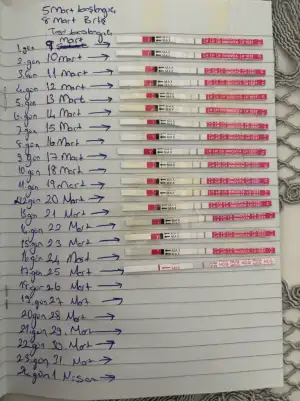 5 Mart başlangıç
8 Mart Bitiş
Test başlangıcı
1.gün 9 Mart →
2.gün 10 Mart →
3.gün 11 Mart →
4.gün 12 Mart →
5.gün 13 Mart →
6.gün 14 Mart →
7.gün 15 Mart →
8.gün 16 Mart →
9.gün 17 Mart →
10.gün 18 Mart →
11.gün 19 Mart →
12.gün 20 Mart →
13.gün 21 Mart →
14.gün 22 Mart →
15.gün 23 Mart →
16.gün 24 Mart →
17.gün 25 Mart →
18.gün 26 Mart →
19.gün 27 Mart →
20.gün 28 Mart →
21.gün 29. Mart →
22.gün 30. Mart →
23.gün 31. Mart →
24.gün 1 Nisan →